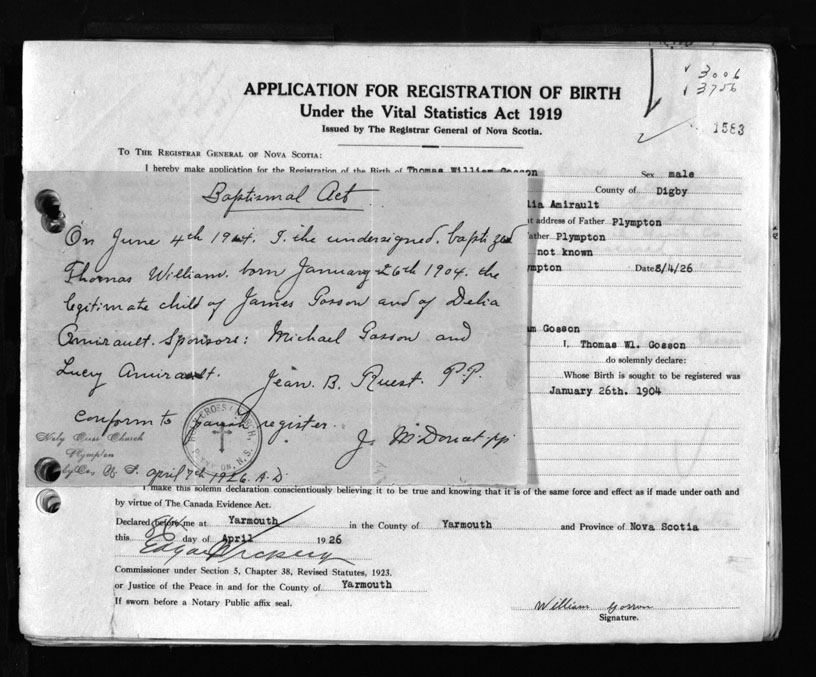 3006
3756
1583
APPLICATION FOR REGISTRATION OF BIRTH
Under the Vital Statistics Act 1919
Issued by The Registrar General of Nova Scotia.
TO THE REGISTRAR GENERAL OF NOVA SCOTIA:
I hereby make application for the Registration of the Birth of Thomas William Gosson Sex male
County of Digby
lia Amirault
t address of Father Plympton
ather Plympton
not known
mpton Date 8/4/26
Baptismal Act
On June 4th 1904. I. the undersigned. baptized
Thomas William. born January 26th 1904. the
legitimate child of James Gosson and of Delia
Amirault. Sponsors: Michael Gosson and
Lucy Amirault. Jean. B. Ruest. P.P.
conform to parish register.
J. McDonat pp.
Holy Cross Church
Plympton
Co, N. S. April 7th 1926. A.D.
HOLY CROSS CHURCH, PLYMPTON, N.S.
am Gosson
I, Thomas Wl. Gosson
do solemnly declare:
Whose Birth is sought to be registered was
January 26th. 1904
I make this solemn declaration conscientiously believing it to be true and knowing that it is of the same force and effect as if made under oath and
by virtue of The Canada Evidence Act.
Declared before me at Yarmouth in the County of Yarmouth and Province of Nova Scotia
this 8th day of April 1926
Edgar
Commissioner under Section 5, Chapter 38, Revised Statutes, 1923.
or Justice of the Peace in and for the County of Yarmouth
If sworn before a Notary Public affix seal.
William Gosson
Signature.